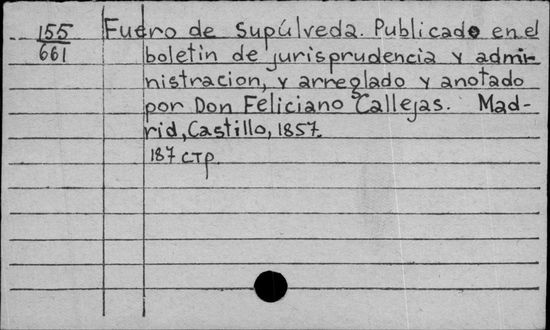 155 Fuero de Supúlveda. Publicado en el
661 boletin de jurisprudencia y admi-
nistracion, y arreglado y anotado
por Don Feliciano Callejas. Mad-
rid, Castillo, 1857.
187 стр.